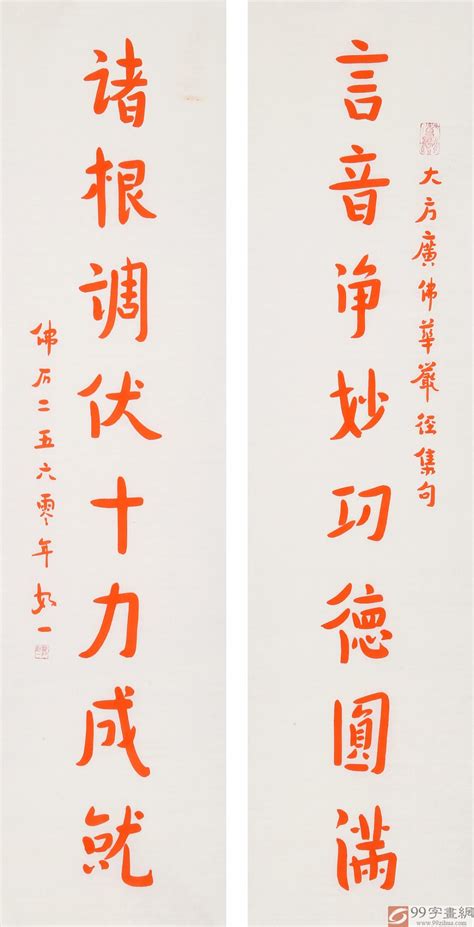 大方廣佛華嚴经集句
言音净妙功德圓满
诸根調伏十力成就
佛历二五六零年
99字畫網
www.99zihua.com